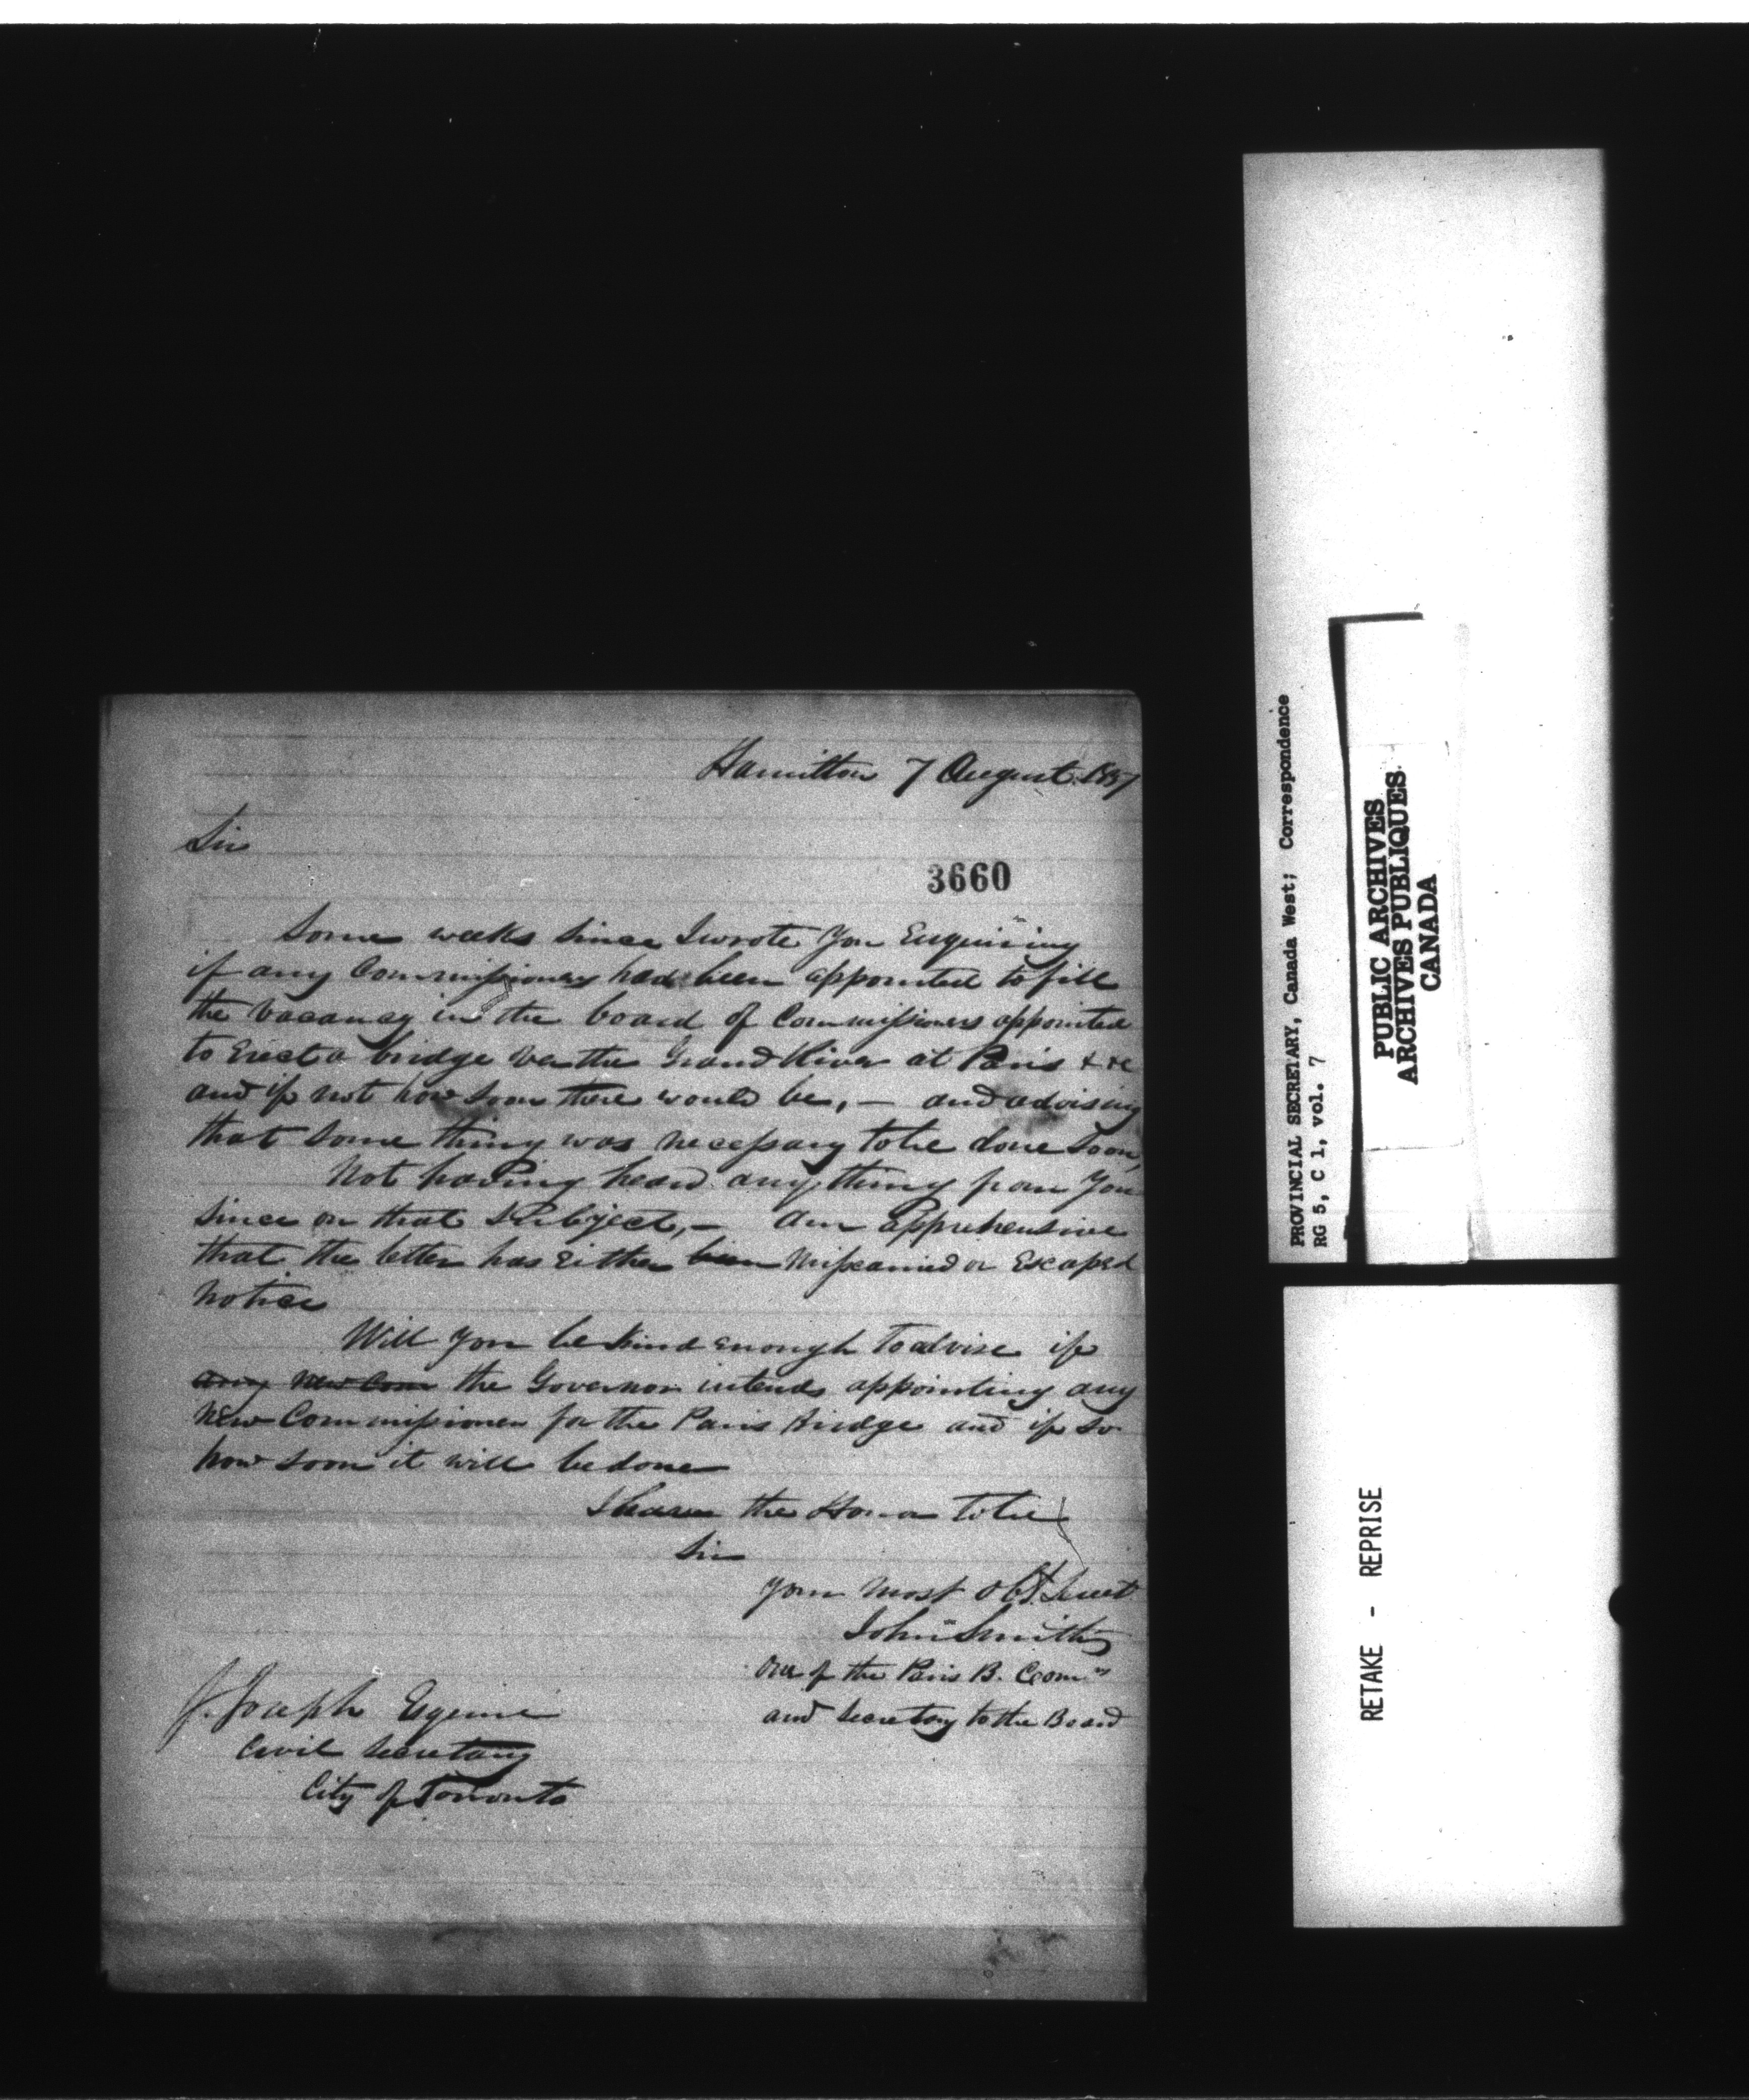 Hamilton 7 August 1837
Sir
3660
Some weeks since I wrote you Enquiring
if any Commissioners had been appointed to fill
the vacancy in the board of Commissioners appointed
to Erect a bridge over the Grand River at Paris &c
and if not how soon there would be, — and advising
that some thing was necessary to be done soon,
Not having heard any thing from you
since on that subject, — am apprehensive
that the letter has Either been Miscarried or Escaped
notice
Will you be kind enough to advise if
any new Com the Governor intends appointing any
New Commissioner for the Paris Bridge and if so
how soon it will be done
I have the Honor to be
Sir
your most obt Servt
John Smith
one of the Paris B. Comrs
and Secretary to the Board
J. Joseph Esquire
Civil Secretary
City of Toronto
PROVINCIAL SECRETARY, Canada West; Correspondence
RG 5, C 1, vol. 7
PUBLIC ARCHIVES
ARCHIVES PUBLIQUES
CANADA
RETAKE - REPRISE